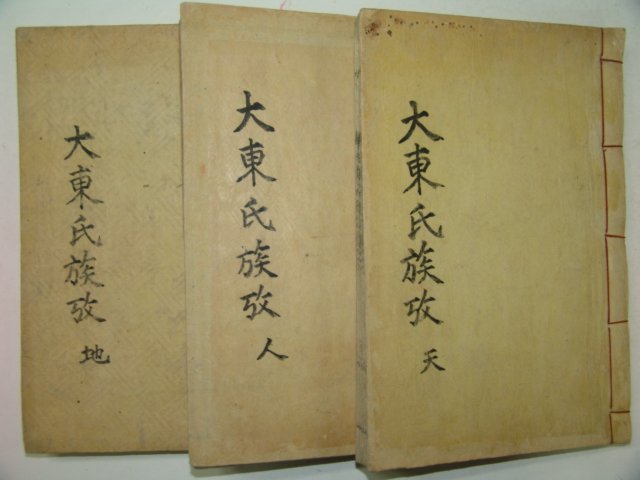 大東氏族攷
天
大東氏族攷
人
大東氏族攷
地